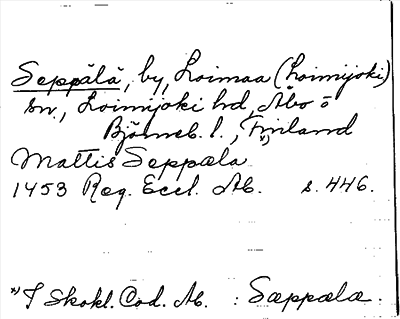 Seppälä, by, Loimaa (Loimijoki)
sn., Loimijoki hd, Åbo o
Björneb. l., *) Finland
Mattis Seppæla
1453 Reg. Eccl. Ab. s. 446.
*) I Skokl. Cod. Ab. : Sæppælæ.